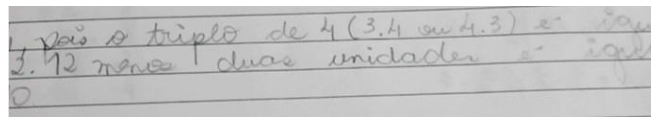 , pois o triplo de 4 (3.4 ou 4.3) é igu
2. 12 menos duas unidades é igu
0